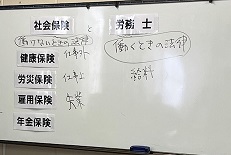 社会保険 と 労務 士
働けないときの法律 働くときの法律
健康保険 仕事外
給料
労災保険 仕事上
雇用保険 失業
年金保険